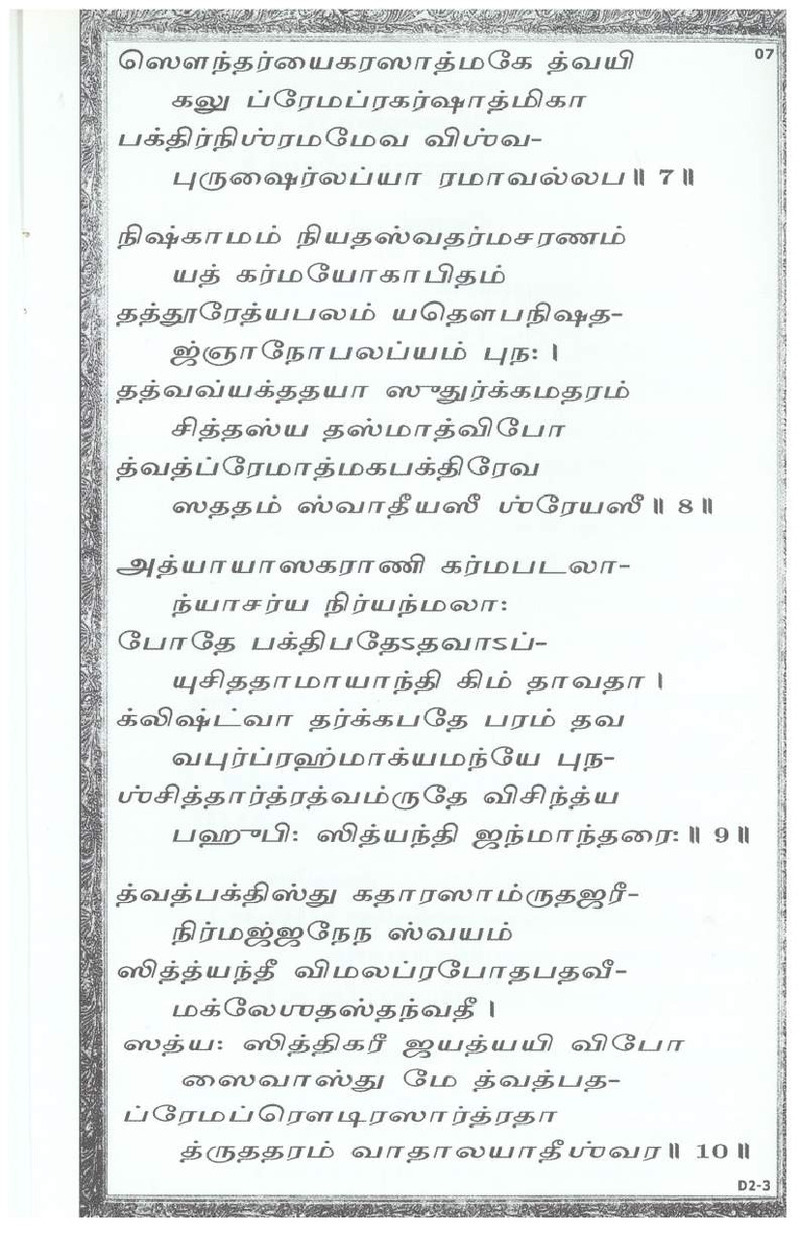 07
ஸௌந்தர்யைகரஸாத்மகே த்வயி
கலு ப்ரேமப்ரகர்ஷாத்மிகா
பக்திர்நிஶ்ரமமேவ விஶ்வ-
புருஷைர்லப்யா ரமாவல்லப॥ 7॥
நிஷ்காமம் நியதஸ்வதர்மசரணம்
யத் கர்மயோகாபிதம்
தத்தூரேத்யபலம் யதௌபநிஷத-
ஜ்ஞாநோபலப்யம் புந: ।
தத்வவ்யக்ததயா ஸுதுர்க்கமதரம்
சித்தஸ்ய தஸ்மாத்விபோ
த்வத்ப்ரேமாத்மகபக்திரேவ
ஸததம் ஸ்வாதீயஸீ ஶ்ரேயஸீ॥ 8॥
அத்யாயாஸகராணி கர்மபடலா-
ந்யாசர்ய நிர்யந்மலா:
போதே பக்திபதேऽதவாऽப்-
யுசிததாமாயாந்தி கிம் தாவதா ।
க்லிஷ்ட்வா தர்க்கபதே பரம் தவ
வபுர்ப்ரஹ்மாக்யமந்யே புந-
ஶ்சித்தார்த்ரத்வம்ருதே விசிந்த்ய
பஹுபி: ஸித்யந்தி ஜந்மாந்தரை:॥ 9॥
த்வத்பக்திஸ்து கதாரஸாம்ருதஜரீ-
நிர்மஜ்ஜநேந ஸ்வயம்
ஸித்த்யந்தீ விமலப்ரபோதபதவீ-
மக்லேஶதஸ்தந்வதீ ।
ஸத்ய: ஸித்திகரீ ஜயத்யயி விபோ
ஸைவாஸ்து மே த்வத்பத-
ப்ரேமப்ரௌடிரஸார்த்ரதா
த்ருததரம் வாதாலயாதீஶ்வர॥ 10॥
D2-3